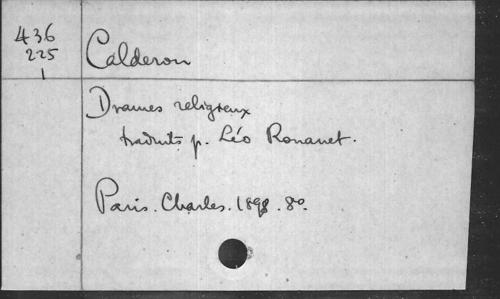 436
225
1
Calderon
Drames religieux
traduits p. Léo Rouanet.
Paris. Charles. 1898. 8o.